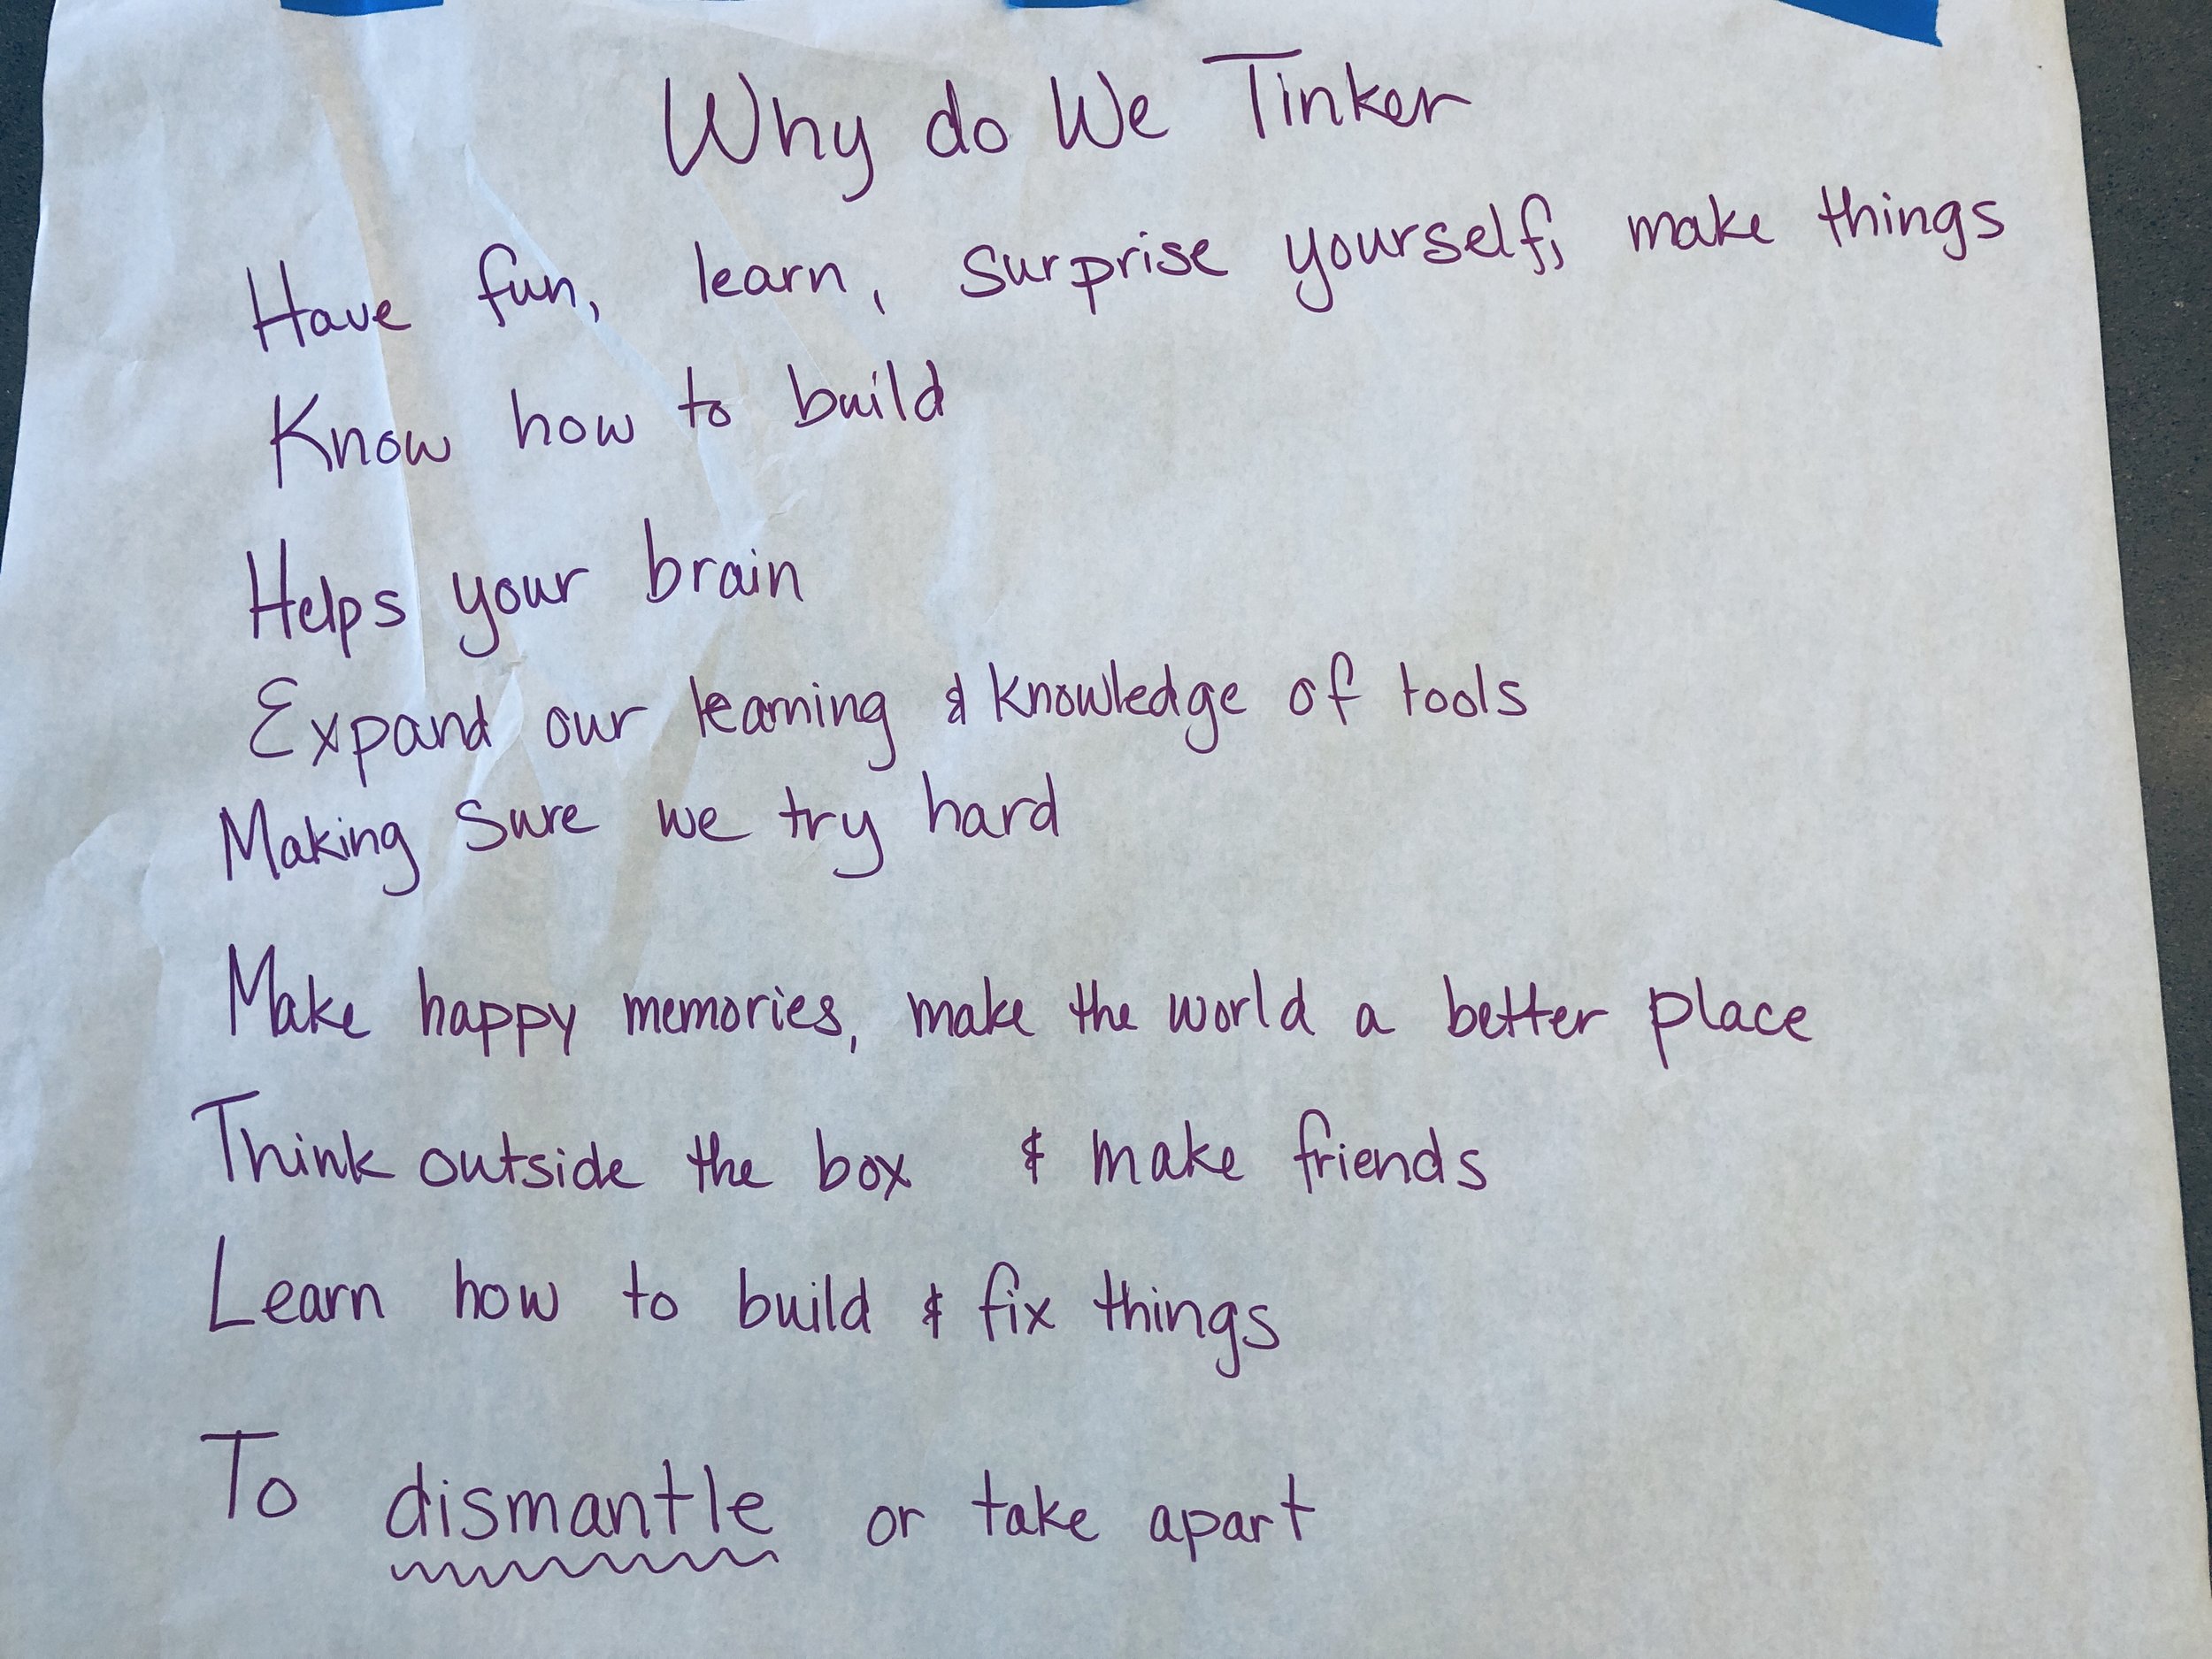 Why do We Tinker
Have fun, learn, surprise yourself, make things
Know how to build
Helps your brain
Expand our learning & knowledge of tools
Making sure we try hard
Make happy memories, make the world a better place
Think outside the box & make friends
Learn how to build & fix things
To dismantle or take apart